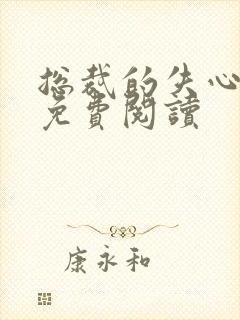 总裁的失心
免費閱讀
康永和